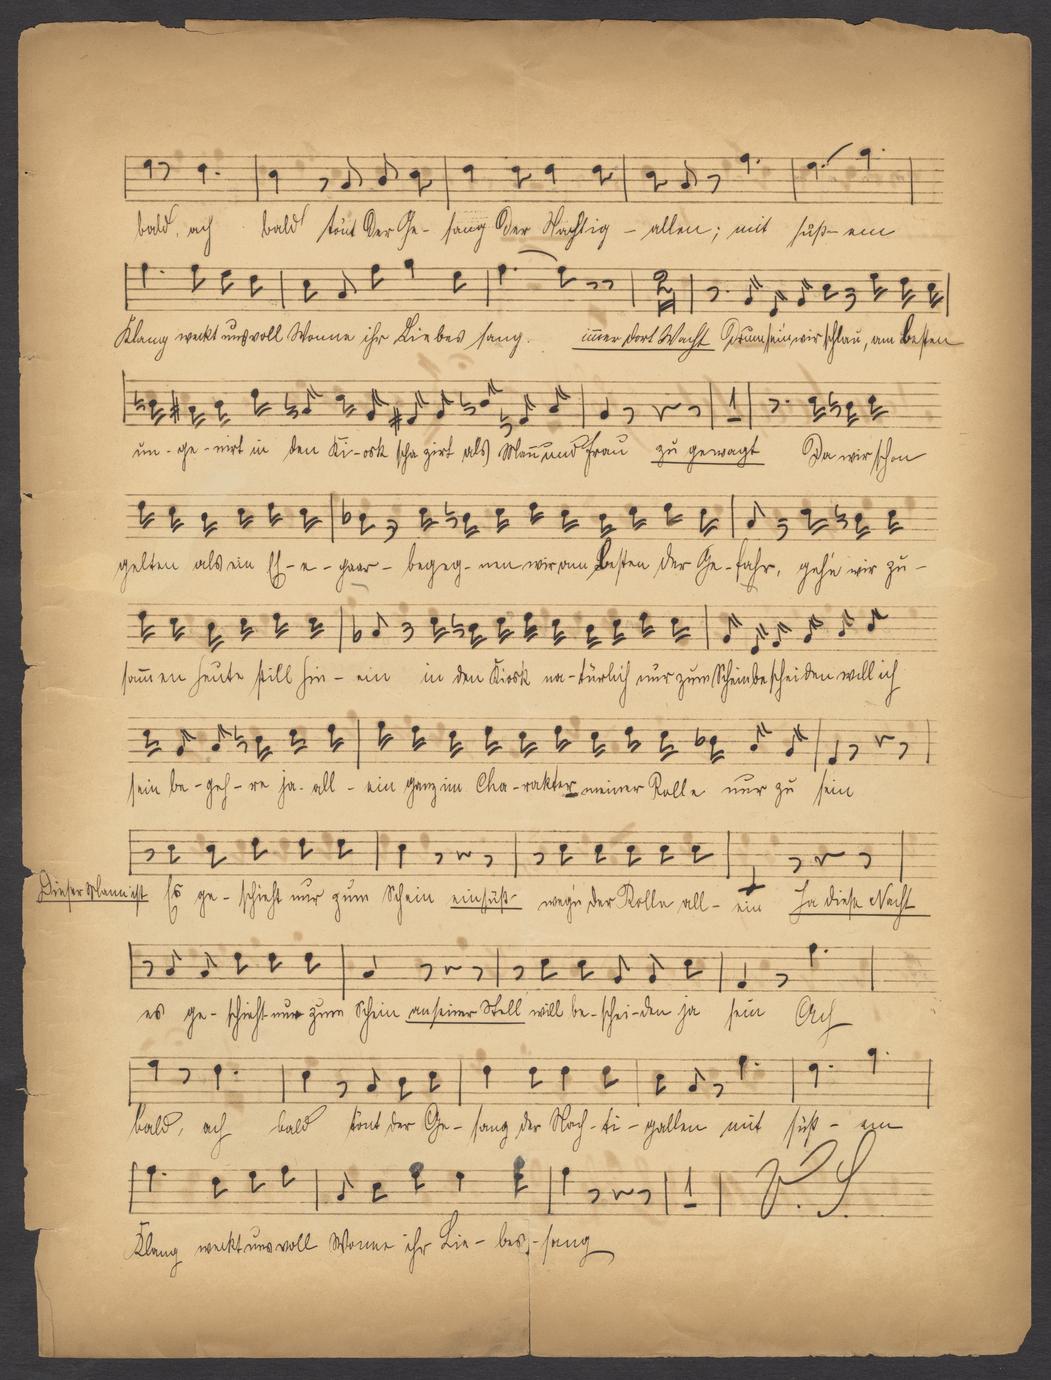 bald, ach bald tönt der Ge- sang der Nachtig - allen; mit süß- em
Klang weckt uns voll Wonne ihr Liebes sang. im̄er dort Wacht Drum sein wir schlau, am besten
un - ge - nirt in den Ki - osk als Man̄ und Frau zu gewagt Da wir schon
gelten als ein Eh - e - paar - begeg - nen wir am Besten der Ge - fahr, geh'n wir zu -
sam̄en heute still hin - ein in den Kiosk na - türlich nur zum Schein bescheiden will ich
sein be - geh - re ja - all - ein ganz im Cha - rakter meiner Rolle nur zu sein
Dieser Mann ist Es ge - schieht nur zum Schein ein süß- weg'n der Rolle all - ein Ha diese Nacht
es ge - schieht nur zum Schein an seiner Stell will be - schei - den ja sein Ach
bald, ach bald tönt der Ge - sang der Nach - ti - gallen mit süß - em
Klang weckt uns voll Wonne ihr Lie - bes - sang